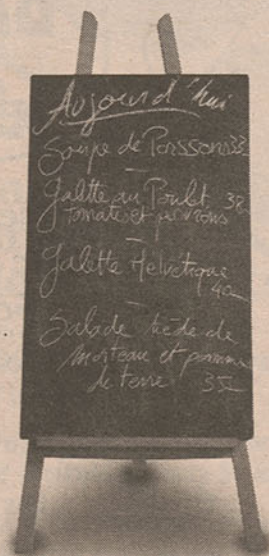 Aujourd'hui
Soupe de Poissons 33.-
Galette au Poulet 38.-
tomate et poivrons
Galette Helvétique
40.-
Salade tiède de
morteau et pomme
de terre 35.-